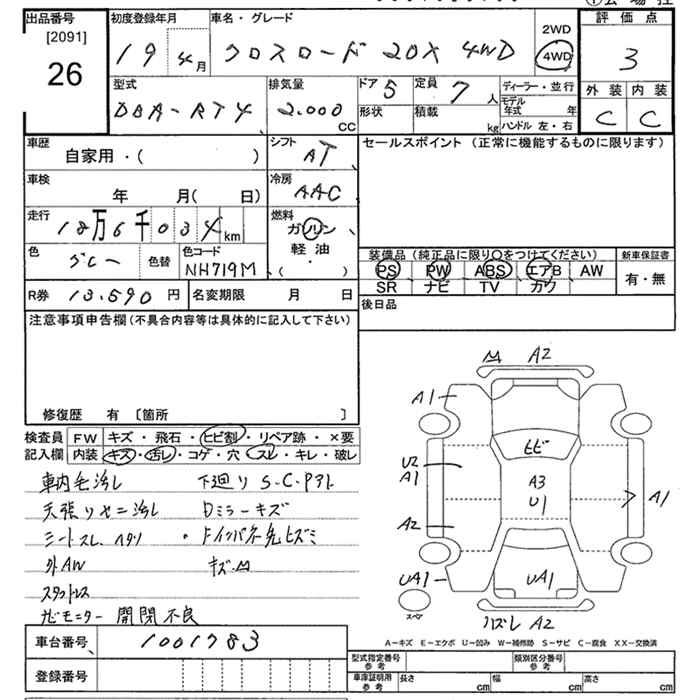 出品番号
[2091]
26
初度登録年月
19 4月
車名・グレード
クロスロード 20X 4WD
2WD
4WD
評価点
3
外装 内装
C C
型式
DBA-RT4
排気量
2.000
CC
ドア 5
形状
定員 7 人
積載 kg
ディーラー・並行
モデル年式 年
ハンドル 左・右
車歴
自家用・( )
シフト
AT
車検
年 月( 日)
冷房
AAC
走行
12万6千034km
燃料
ガソリン
軽油
・
( )
色
グレー
色替
色コード
NH719M
R券 13.590円
名変期限 月 日
セールスポイント(正常に機能するものに限ります)
装備品(純正品に限り○をつけてください)
PS PW ABS エアB AW
SR ナビ TV カワ
新車保証書
有・無
後日品
注意事項申告欄(不具合内容等は具体的に記入して下さい)
修復歴 有 〔箇所 〕
検査員記入欄
FW キズ・飛石・ヒビ割・リペア跡・×要
内装 キズ・汚レ・コゲ・穴・スレ・キレ・破レ
車内毛汚レ 下廻り S・C・
天張りヤニ汚レ Dミラーキズ
シートスレ、ヘタリ
外AW キズ
スタットレス
モニター 開閉不良
車台番号 1001783
登録番号
A2
A1
ヒビ
U2
A1
A3
U1
A1
A2
UA1
UA1
スペア
ハズレ A2
A-キズ E-エクボ U-凹み W-補修跡 S-サビ C-腐食 XX-交換済
型式指定番号
参考
類別区分番号
参考
車庫証明用
参考
長さ cm 幅 cm 高さ cm